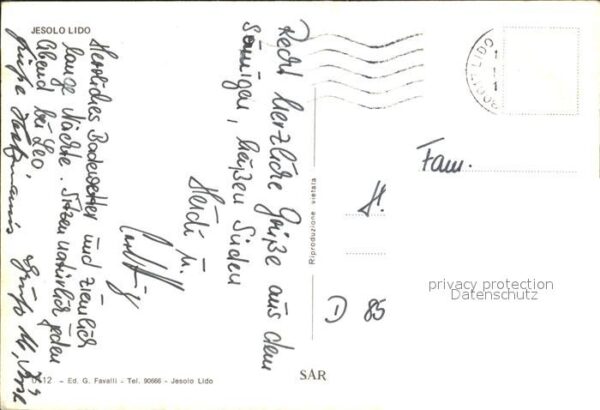 JESOLO LIDO
Recht herzliche Grüße aus dem
sonnigen, heißen Süden
Heidi u.
Herrliches Badewetter und ziemlich
lange Nächte. Sitzen natürlich jeden
Abend bei Leo.
Grüße
Fam.
H.
D 85
Riproduzione vietata
privacy protection
Datenschutz
SAR
Ed. G. Favalli - Tel. 90666 - Jesolo Lido
LIDO